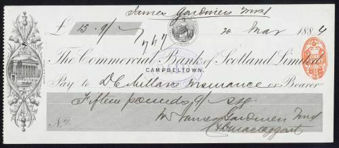 James Gardiners Trust
£ 15. 9/- 20 Mar 1884
The Commercial Bank of Scotland Limited
CAMPBELTOWN.
Pay to D C McMillans Insurance or Bearer
Fifteen pounds 9/- Stg
No
James Gardiners Trust
C Mactaggart